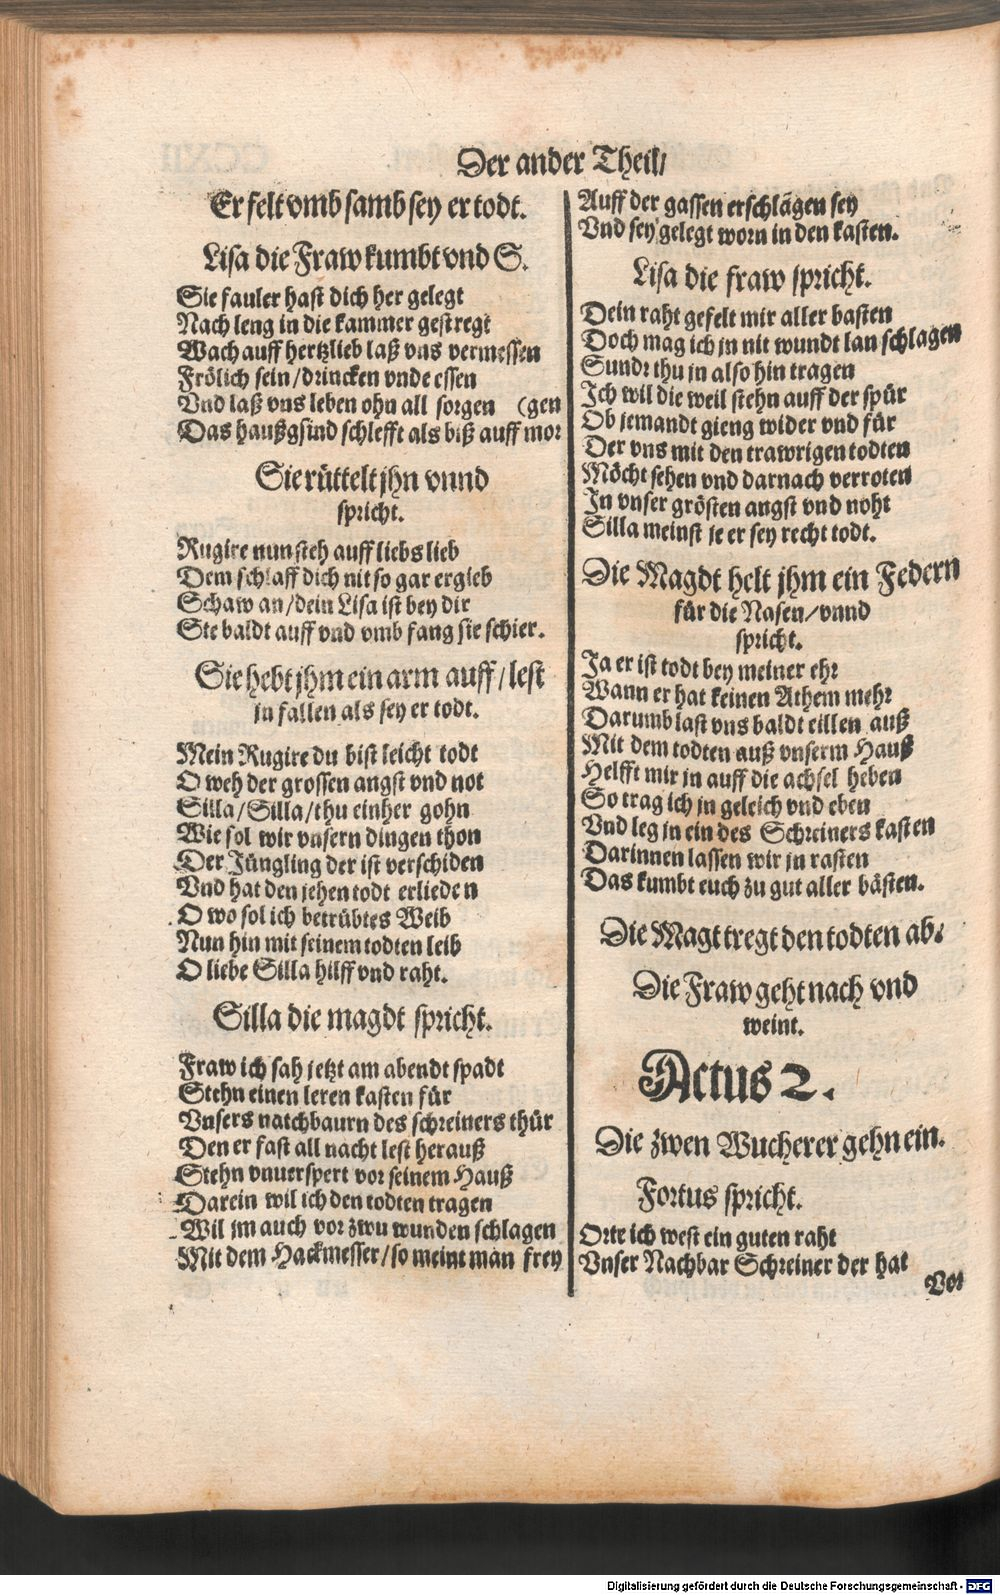 Der ander Theil/
Er felt vmb samb sey er todt.
Lisa die Fraw kumbt vnd S.
Sie fauler hast dich her gelegt
Nach leng in die kammer gestregt
Wach auff hertzlieb laß vns vermessen
Frölich sein/drincken vnde essen
Vnd laß vns leben ohn all sorgen (gen
Das haußgsind schlefft als biß auff mor
Sie rüttelt jhn vnnd
spricht.
Rugire nun steh auff liebs lieb
Dem schlaff dich nit so gar ergieb
Schaw an/dein Lisa ist bey dir
Ste baldt auff vnd vmb fang sie schier.
Sie hebt jhm ein arm auff/lest
jn fallen als sey er todt.
Mein Rugire du bist leicht todt
O weh der grossen angst vnd not
Silla/Silla/thu einher gohn
Wie sol wir vnsern dingen thon
Der Jüngling der ist verschiden
Vnd hat den jehen todt erlieden
O wo sol ich betrübtes Weib
Nun hin mit seinem todten leib
O liebe Silla hilff vnd raht.
Silla die magdt spricht.
Fraw ich sah jetzt am abendt spadt
Stehn einen leren kasten für
Vnsers natchbaurn des schreiners thür
Den er fast all nacht lest herauß
Stehn vnuerspert vor seinem Hauß
Darein wil ich den todten tragen
Wil jm auch vor zwu wunden schlagen
Mit dem Hackmesser/so meint man frey
Auff der gassen erschlagen sey
Vnd sey gelegt worn in den kasten.
Lisa die fraw spricht.
Dein raht gefelt mir aller basten
Doch mag ich jn nit wundt lan schlagen
Sundr thu jn also hin tragen
Ich wil die weil stehn auff der spür
Ob jemandt gieng wider vnd für
Der vns mit den trawrigen todten
Möcht sehen vnd darnach verroten
In vnser grösten angst vnd noht
Silla meinst je er sey recht todt.
Die Magdt helt jhm ein Federn
für die Nasen/vnnd
spricht.
Ja er ist todt bey meiner ehr
Wann er hat keinen Athem mehr
Darumb last vns baldt eillen auß
Mit dem todten auß vnserm Hauß
Helfft mir jn auff die achsel heben
So trag ich jn geleich vnd eben
Vnd leg jn ein des Schreiners kasten
Darinnen lassen wir jn rasten
Das kumbt euch zu gut aller bästen.
Die Magt tregt den todten ab:
Die Fraw geht nach vnd
weint.
Actus 2.
Die zwen Wucherer gehn ein.
Fortus spricht.
Ortr ich west ein guten raht
Vnser Nachbar Schreiner der hat
Vor
Digitalisierung gefördert durch die Deutsche Forschungsgemeinschaft - DFG